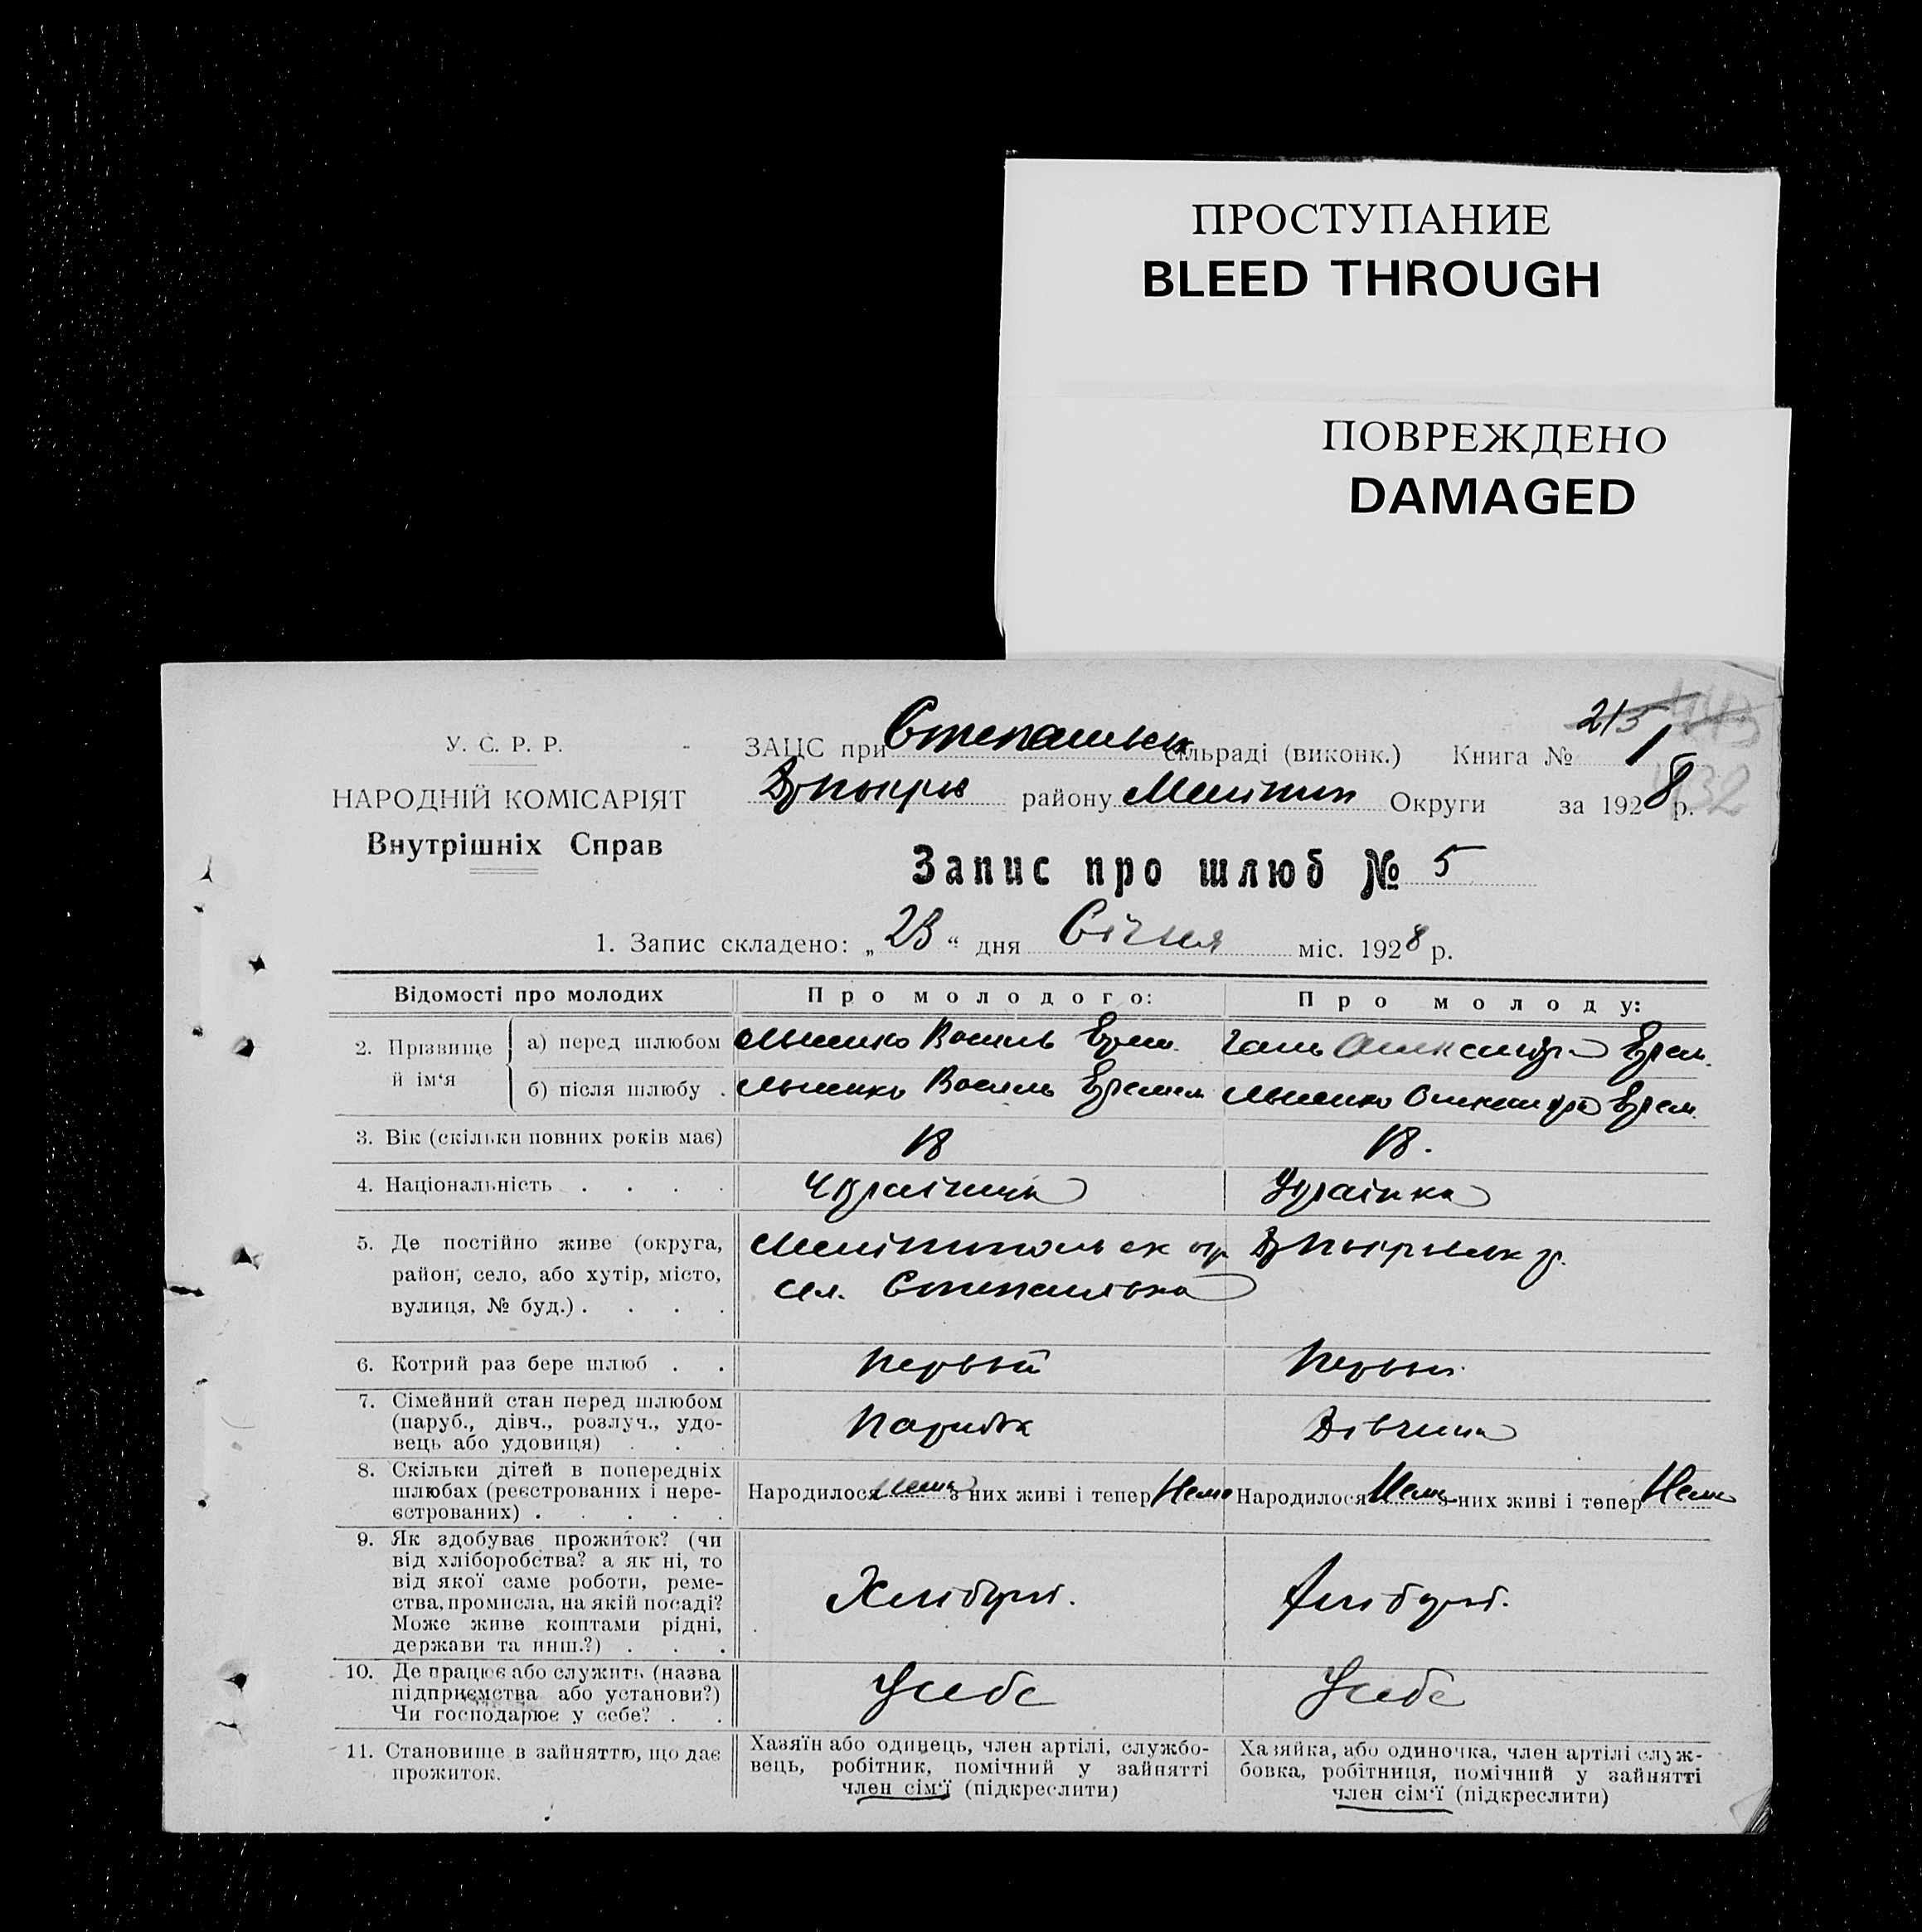 ПРОСТУПАНИЕ
BLEED THROUGH
ПОВРЕЖДЕНО
DAMAGED
215
У. С. Р. Р.
ЗАЦС при Степанівськ сільраді (виконк.) Книга № 1
НАРОДНІЙ КОМІСАРІЯТ
району Меліт Округи за 1928 р.
Внутрішніх Справ
Запис про шлюб № 5
1. Запис складено: „23“ дня Січня міс. 1928 р.
Відомості про молодих Про молодого: Про молоду:
2. Прізвище й ім‘я
а) перед шлюбом Василь Ерем. Олександра Ерем.
б) після шлюбу . Василь Еремем Олександра Ерем.
3. Вік (скільки повних років має) 18 18.
4. Національність . . . . Українець Українка
5. Де постійно живе (округа, Мелітопольск окр
район, село, або хутір, місто, сел. Степанівка
вулиця, № буд.) . . . .
6. Котрий раз бере шлюб . . Первый Первый
7. Сімейний стан перед шлюбом
(паруб., дівч., розлуч., удо- Парубок Дівчина
вець або удовиця) . . .
8. Скільки дітей в попередніх
шлюбах (реєстрованих і нере- Народилося Нема з них живі і тепер Нема Народилося Нема з них живі і тепер Нема
єстрованих) . . . . .
9. Як здобуває прожиток? (чи
від хліборобства? а як ні, то
від якої саме роботи, реме-
ства, промисла, на якій посаді?
Може живе коштами рідні,
держави та инш.?) . . .
10. Де працює або служить (назва
підприємства або установи?) У себе У себе
Чи господарює у себе? . .
11. Становище в зайняттю, що дає
прожиток.
Хазяїн або одинець, член артілі, службо-
вець, робітник, помічний у зайнятті
член сім‘ї (підкреслити)
Хазяйка, або одиночка, член артілі служ-
бовка, робітниця, помічний у зайнятті
член сім‘ї (підкреслити)